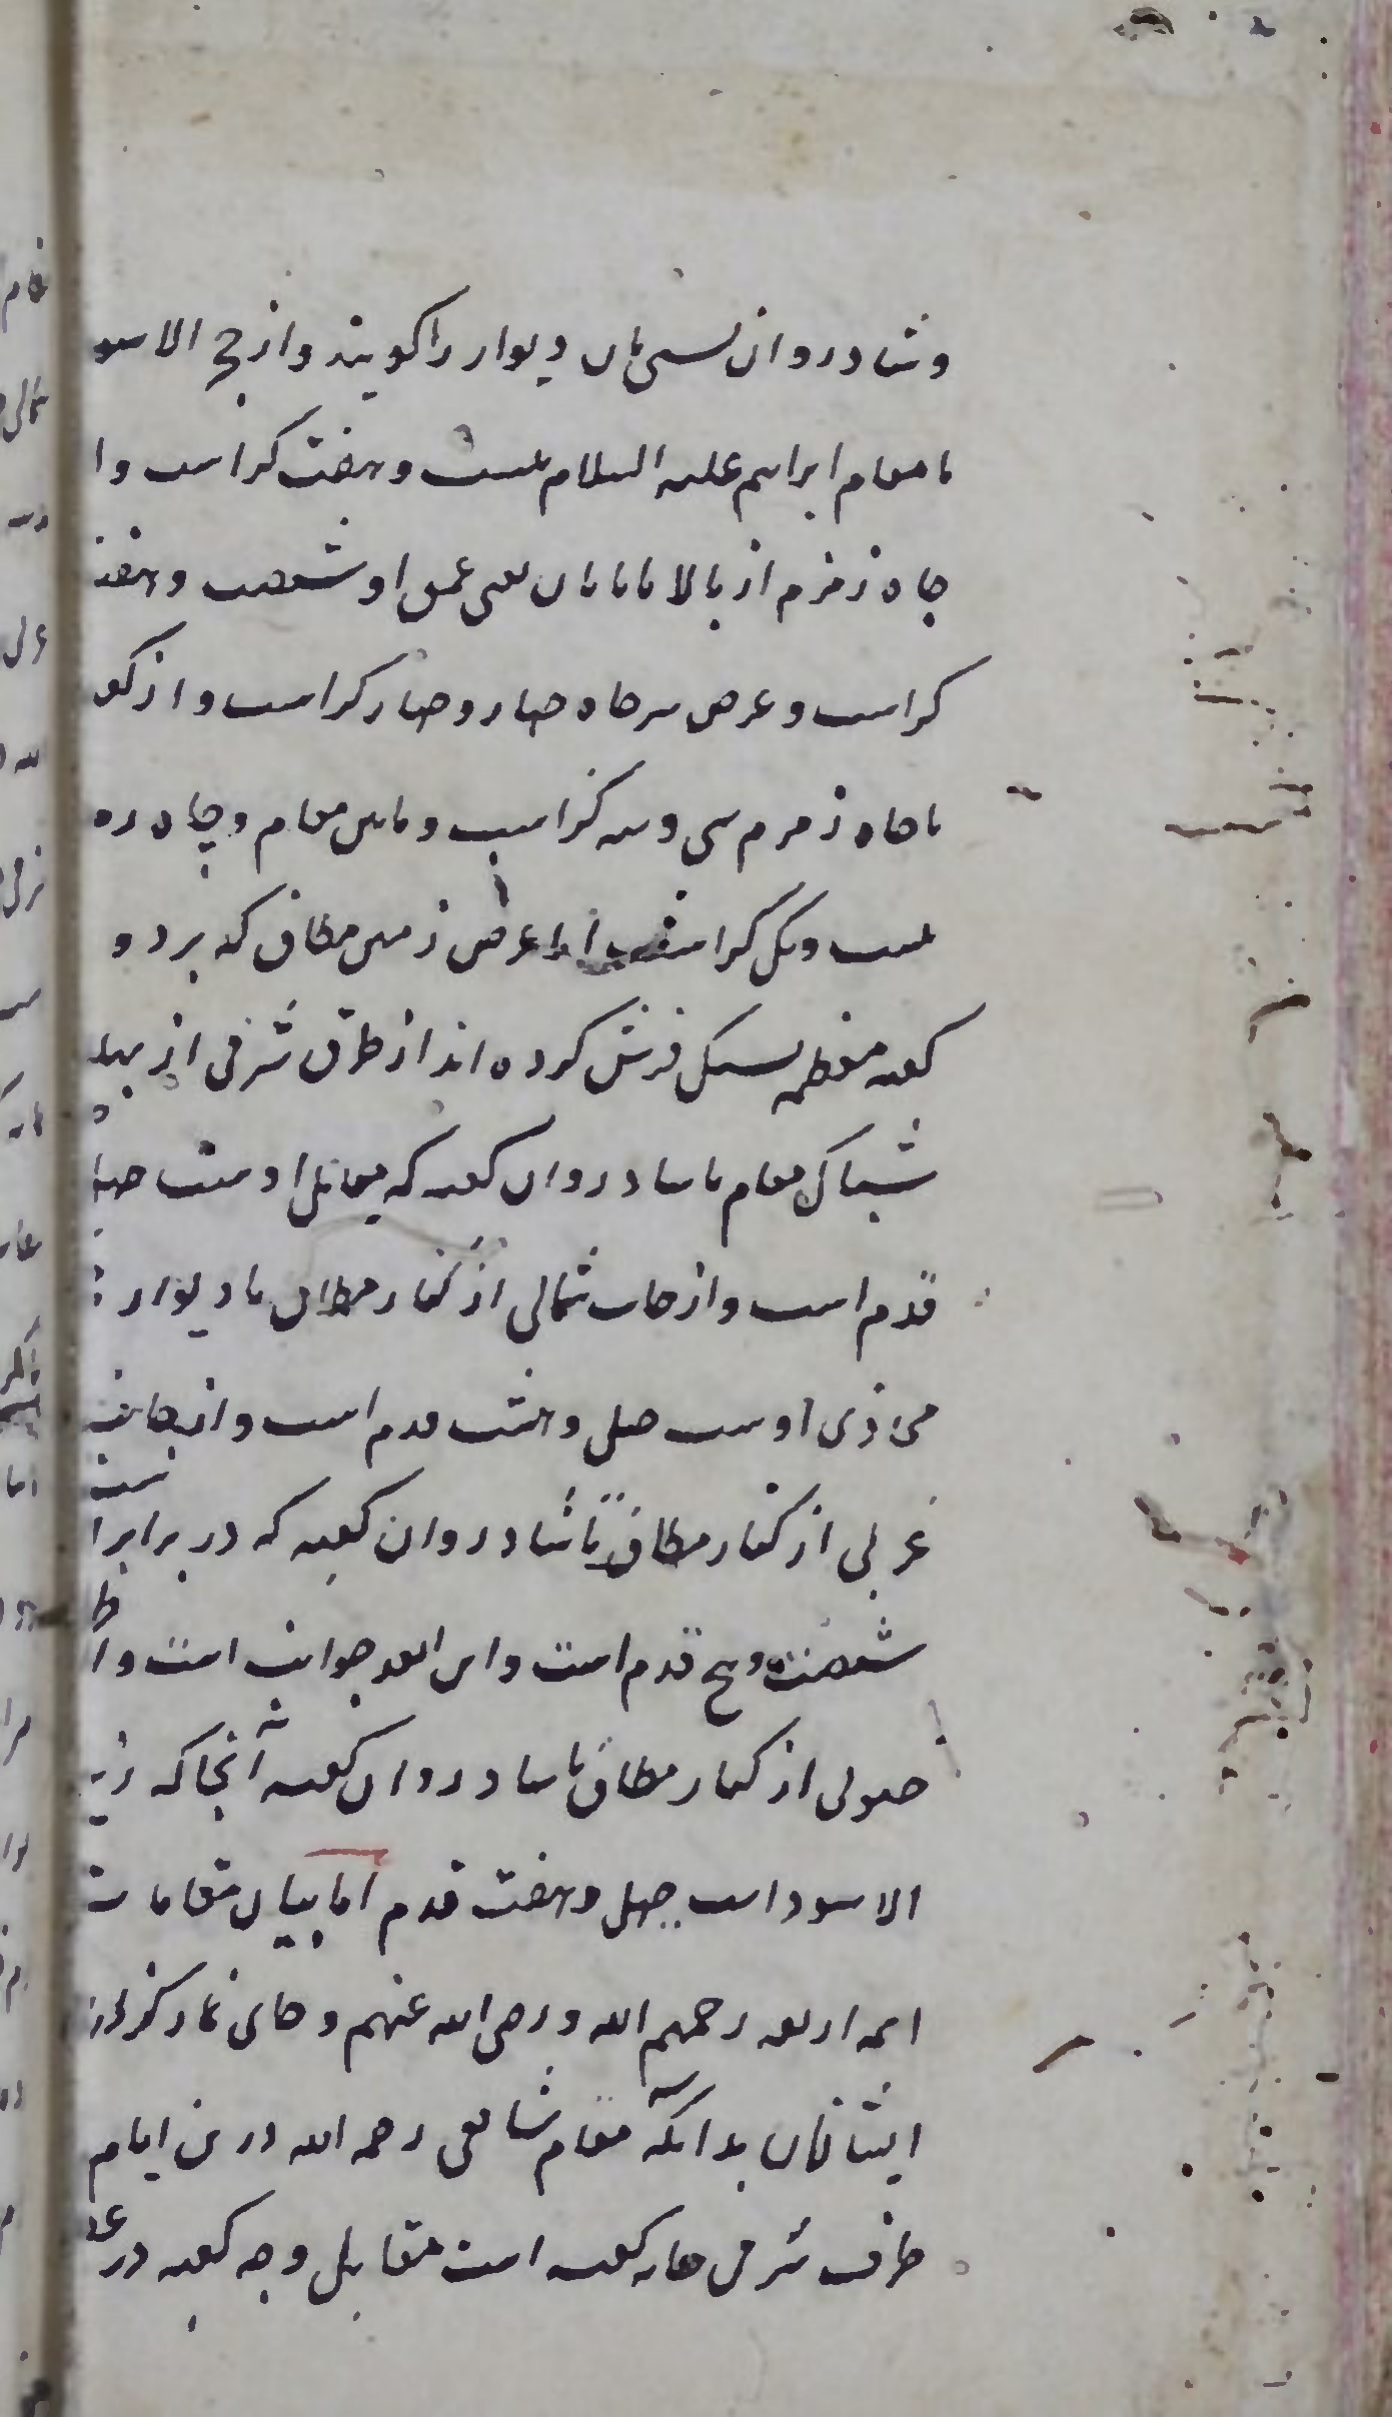 وشادروان پستی بان دیوار را کویند واز حج الاسو
تا مقام ابراهیم علیه السلام بیست وهفت کز است وا
چاه زمزم از بالا تا پایان یعنی عمق او شصت وهفت
کز است وعرض سر چاه چهار وچهار کز است واز کو
تا چاه زمزم سی وسه کز است ومابین مقام وچاه زه
بیست ویک کز است اما عرض زمین مطاف که برد و
کعبه معظمه بسنک فرش کرده اند از طرف شرقی از
شباک مقام تا شادروان کعبه که مقابل اوست چها
قدم است واز جانب شمالی از کنار مطاف تا دیوار
محاذی اوست چهل وهشت قدم است واز جانب
غربی از کنار مطاف تا شادروان کعبه که در برابر است
شصت وپنج قدم است واین ابعد جوانب است واز ط
جنوبی از کنار مطاف تا شادروان کعبه آنجا که زیر
الاسود است چهل وهفت قدم اما بیان مقامات
ایمه اربعه رحمهم الله ورضی الله عنهم وجای نماز کزاردن
ایشان بدانکه مقام شافعی رحمه الله درین ایام
طرف شرقی خانه کعبه است مقابل وجه کعبه در عـ